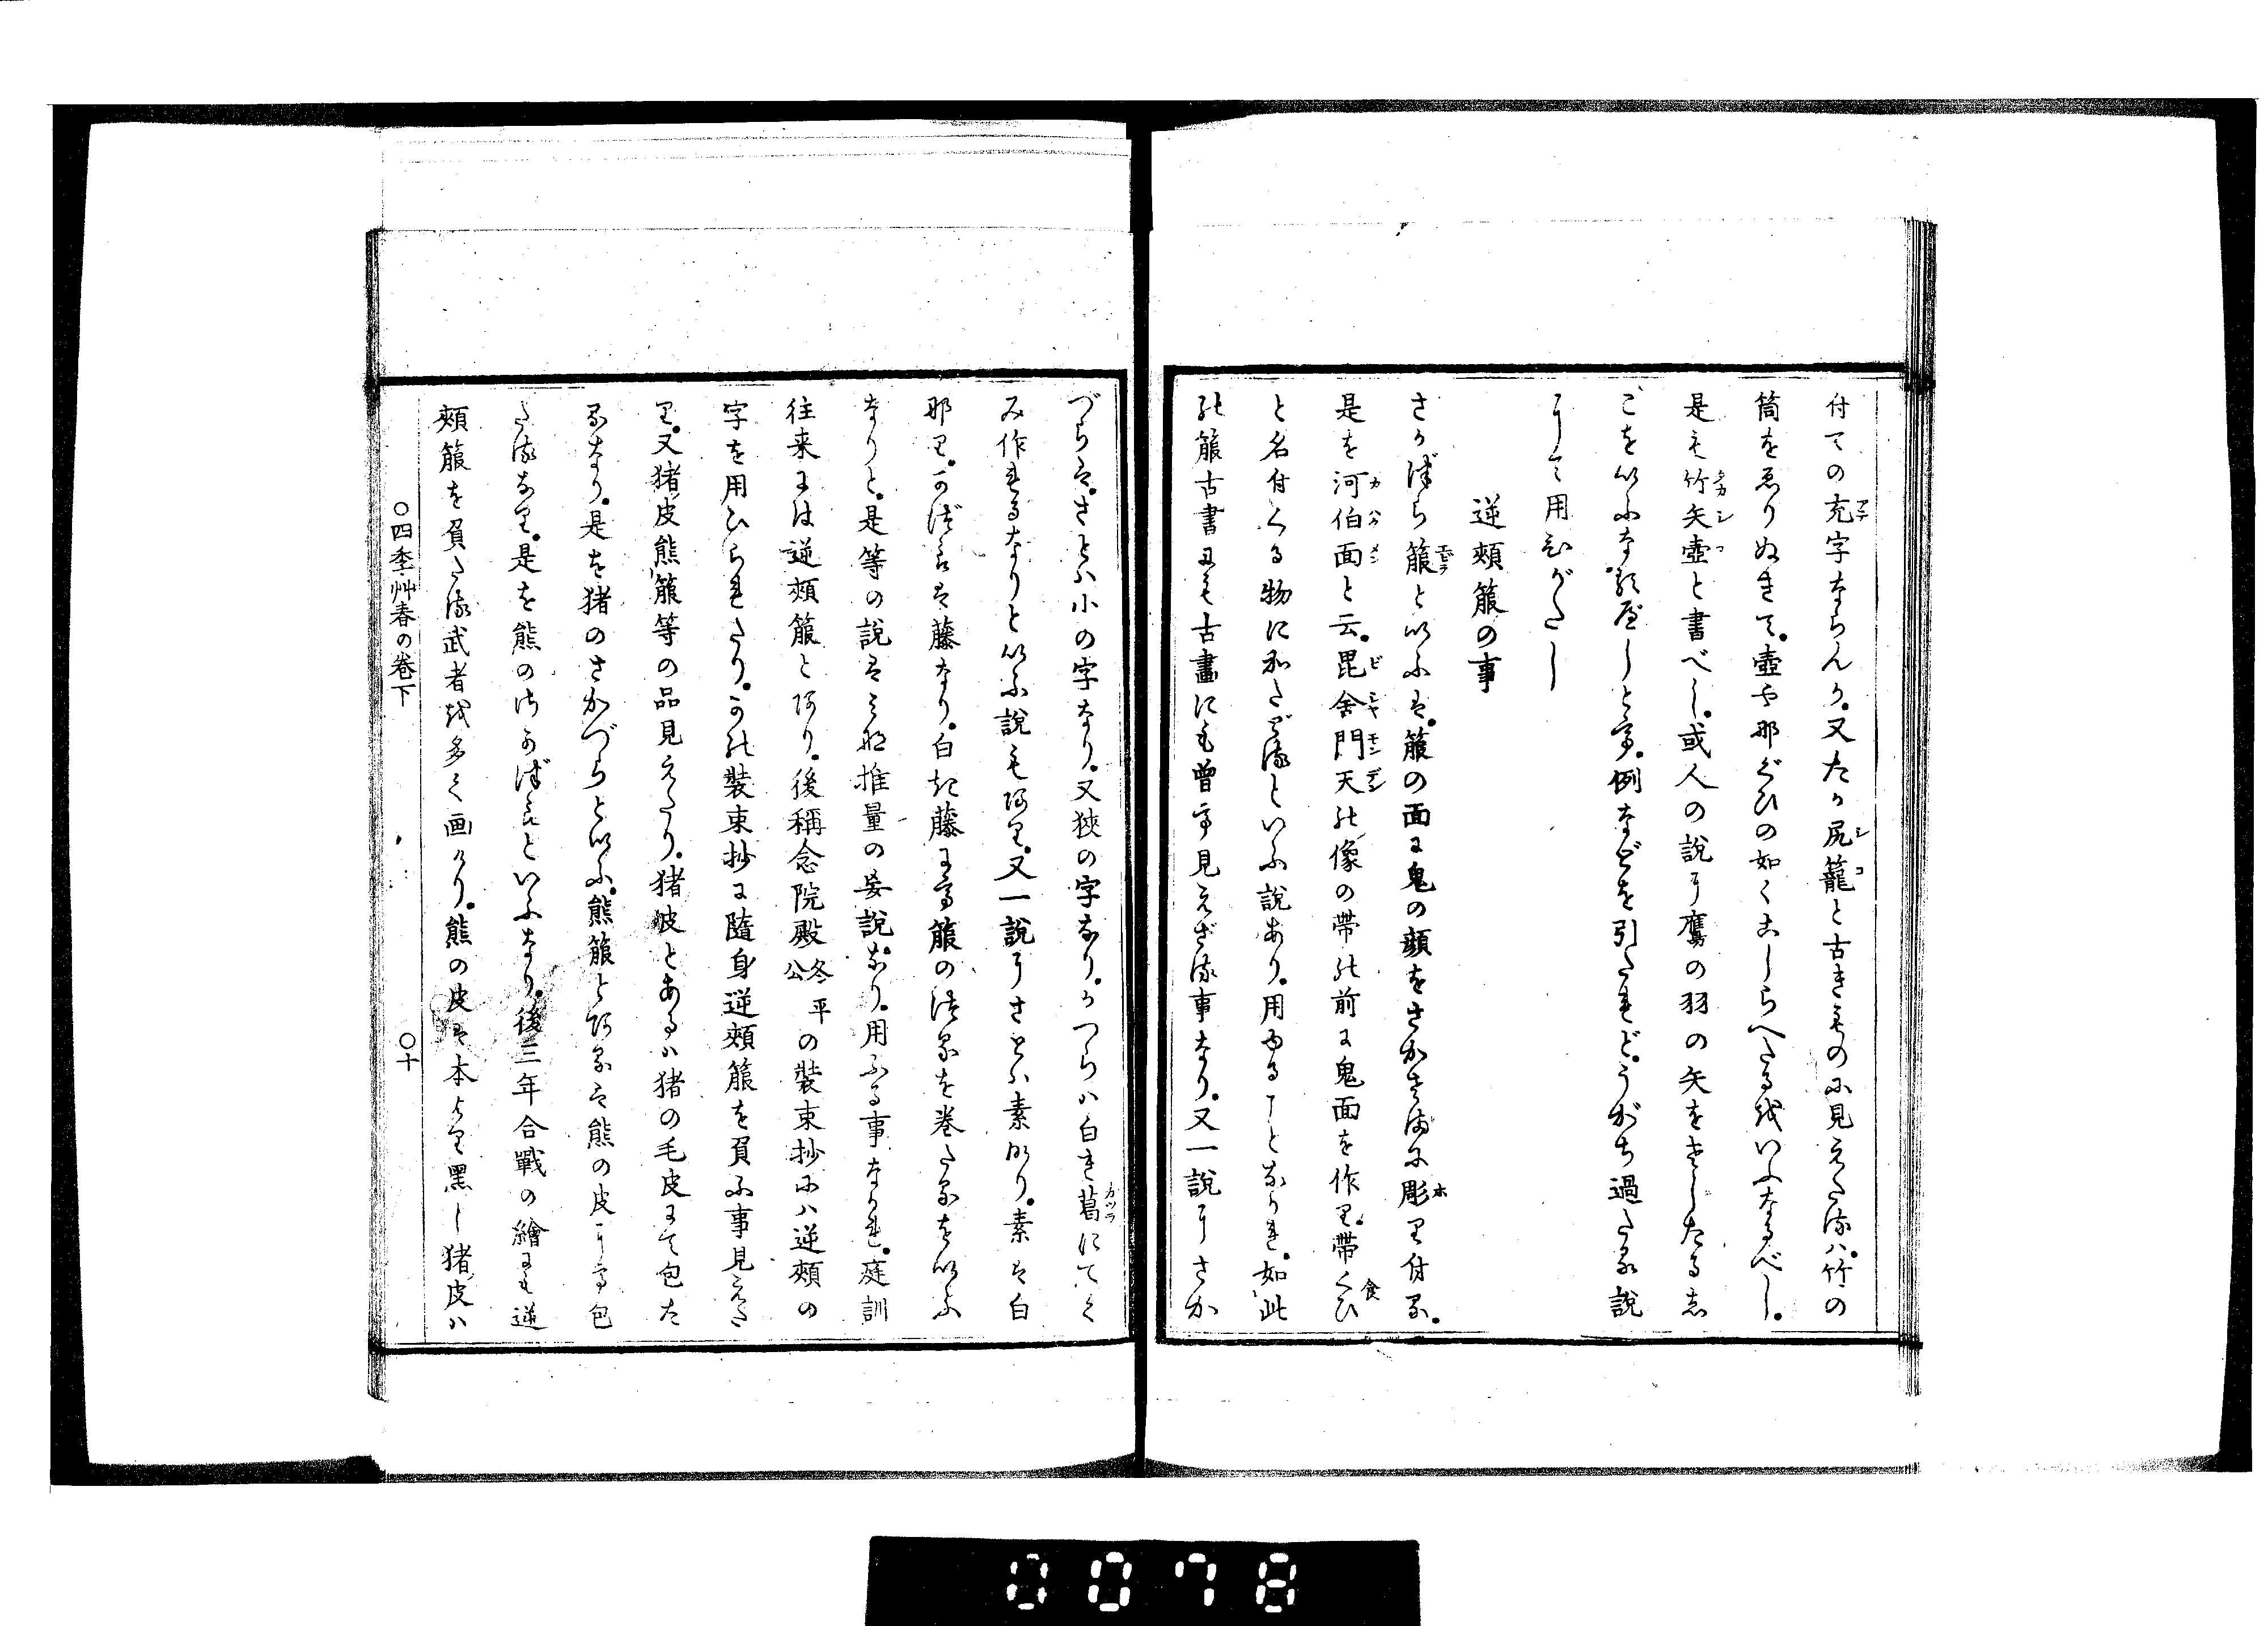 付ての充字ならんか。又たか尻籠と古きものに見えたるハ。竹の
筒をゑりぬきて。壺やなぐひの如くこしらへたるをいふなるべし。
是も竹矢壺と書べし。或人の説に鷹の羽の矢をさしたるし
こをいふなるべしと て。例などを引たれど。うがち過たる説
にて用ひがたし
逆頰箙の事
さかづら箙といふは。箙の面に鬼の顔をさかさまに彫り付る。
是を河伯面と云。毘舎門天の像の帯の前に鬼面を作り。帯くひ
と名付くる物に和たぐるといふ説あり。用ゆることなかれ。如此
の箙古書にも古畫にも曾て見えざる事なり。又一説にさか
づらは。さとハ小の字なり。又狹の字なり。かつらハ白き葛にてく
み作れるなりといふ説もあり。又一説にさとハ素なり。素は白
なり。かづらは藤なり。白き藤にて箙のつらを巻たるをいふ
なりと。是等の説はみな推量の妄説なり。用ふる事なかれ。庭訓
往来には逆頰箙とあり。後稱念院殿冬平公の裝束抄にハ逆頰の
字を用ひられたり。かの裝束抄に隨身逆頰箙を負ふ事見えた
り。又猪皮熊箙等の品見えたり。猪皮とあるハ猪の毛皮にて包た
るなり。是を猪のさかづらといふ。熊箙とあるは熊の皮にて包
たるなり。是を熊のさかづらといふなり。後三年合戰の繪にも逆
頰箙を負たる武者を多く画けり。熊の皮は本より黑し猪皮ハ
○四季艸春の巻下
○十
0078